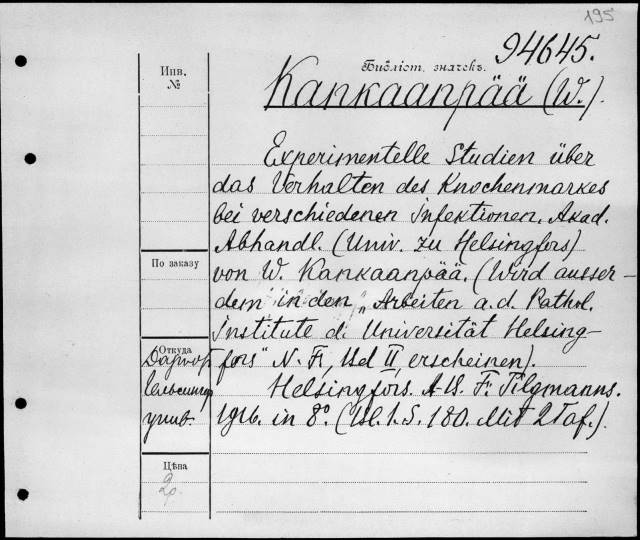 195
94645.
Библіот. значекъ.
Инв.
№
Kankaanpää (W.).
Experimentelle Studien über
das Verhalten des Knochenmarkes
bei verschiedenen Infektionen. Akad.
Abhandl. (Univ. zu Helsingfors)
von W. Kankaanpää. (Wird ausser-
dem in den „Arbeiten a. d. Pathol.
Institute d. Universität Helsing-
fors" N. F., Bd II, erscheinen).
Helsingfors. A-B. F. Tilgmanns.
1916. in 8°. (Bl. 1. S. 180. Mit 2 Taf.).
По заказу
Откуда
Даръ отъ
Гельсингф.
унив.
Цѣна
2р.